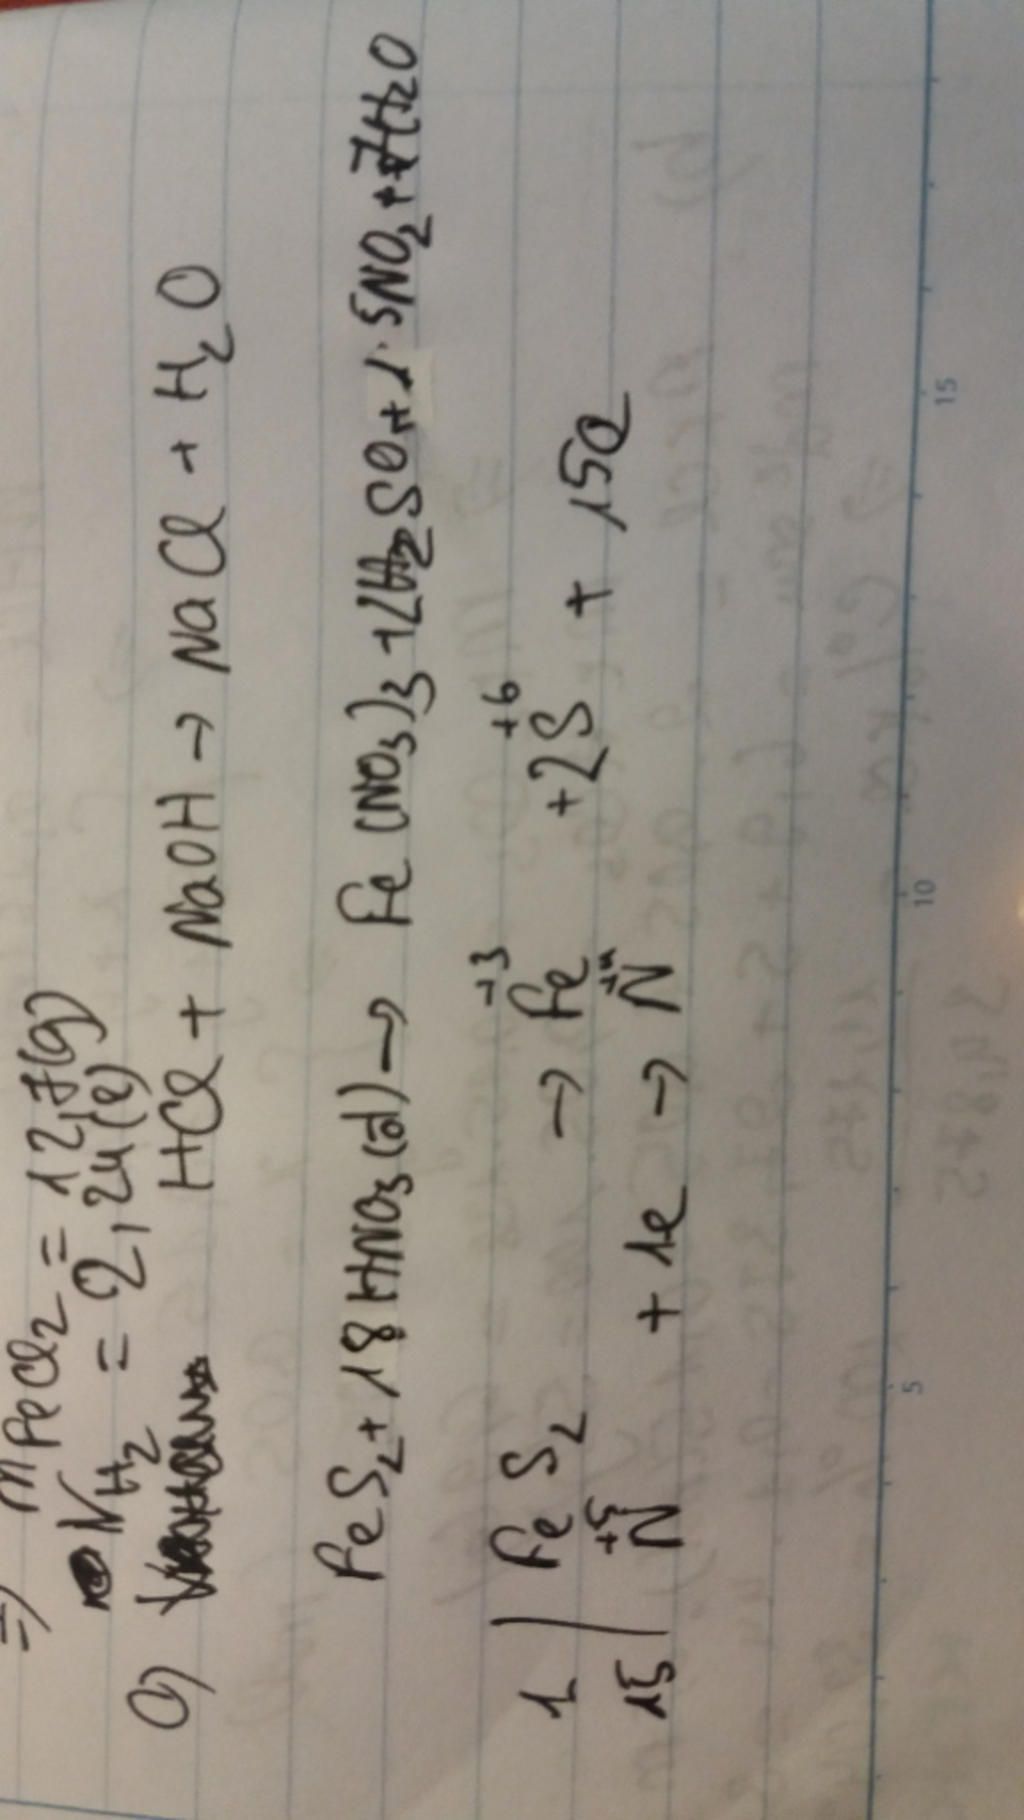 =) mFeCl2 = 12,7(g)
VH2 = 2,24(l)
c) HCl + NaOH → NaCl + H2O
FeS2 + 18HNO3(đ) → Fe(NO3)3 + 2H2SO4 + 15NO2 + 7H2O
1 | FeS2 → Fe+3 + 2S+6 + 15e
15 | N+5 + 1e → N+4
5 10 15